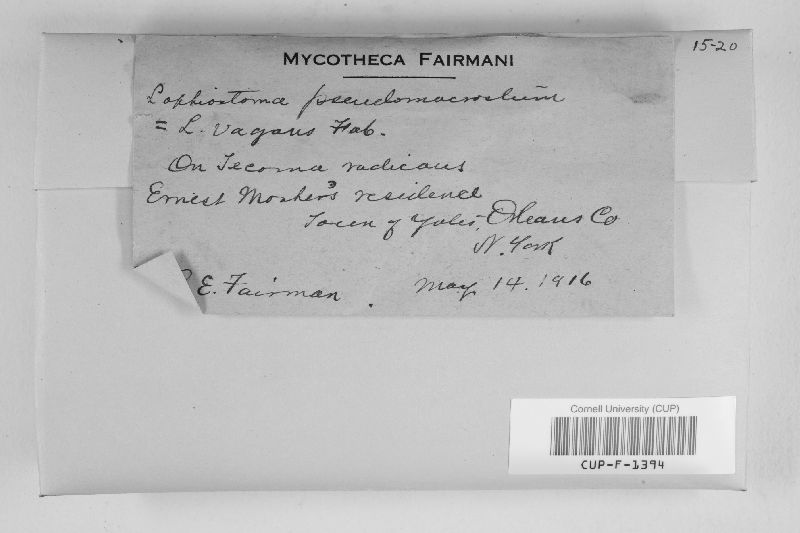 15-20
MYCOTHECA FAIRMANI
Lophiostoma pseudomacrostum
= L. vagans Fab.
On Tecoma radicans
Ernest Mosher's residence
Town of Yates, Orleans Co
N. York
E. Fairman. May 14. 1916
Cornell University (CUP)
CUP-F-1394